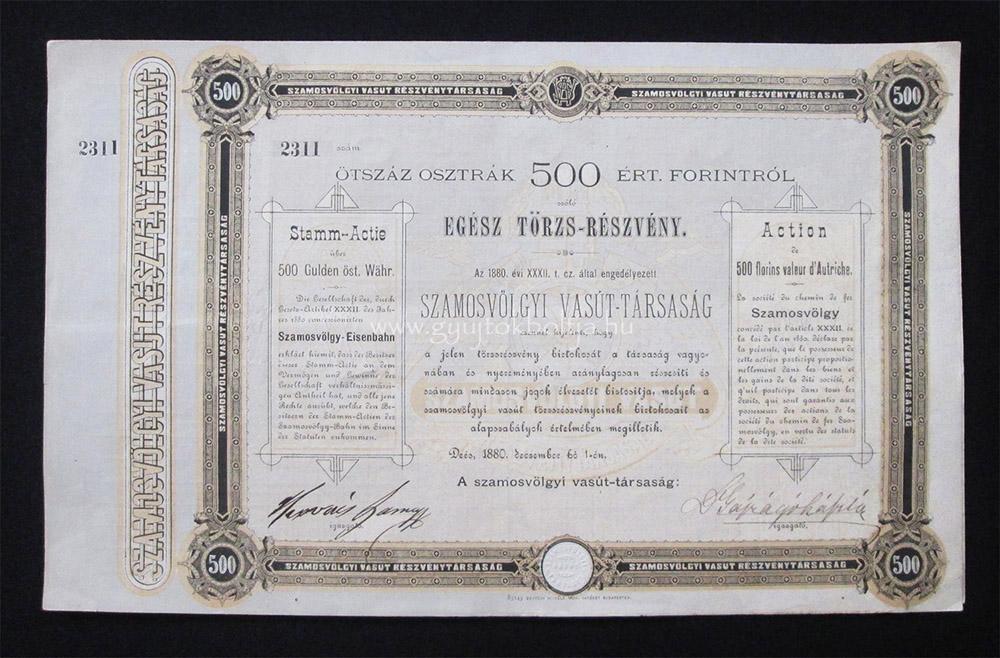 SZAMOSVÖLGYI VASUT RÉSZVÉNYTÁRSASÁG
500
SZAMOSVÖLGYI VASUT RÉSZVÉNYTÁRSASÁG
SZAMOSVÖLGYI VASUT RÉSZVÉNYTÁRSASÁG
500
2311
2311 szám
ÖTSZÁZ OSZTRÁK 500 ÉRT. FORINTRÓL
szóló
EGÉSZ TÖRZS-RÉSZVÉNY.
Az 1880. évi XXXII. t. cz. által engedélyezett
SZAMOSVÖLGYI VASÚT-TÁRSASÁG
ezennel kijelenti, hogy
a jelen törzsrészvény birtokosát a társaság vagyo-
nában és nyereményében aránylagosan részesiti és
számára mindazon jogok élvezetét biztositja, melyek a
szamosvölgyi vasút törzsrészvényeinek birtokosait az
alapszabályok értelmében megilletik.
Deés, 1880. deczember hó 1-én.
A szamosvölgyi vasút-társaság:
igazgató.
igazgató.
Stamm-Actie
über
500 Gulden öst. Währ.
Die Gesellschaft der, durch
Gesetz-Artikel XXXII. des Jah-
res 1880 concessionirten
Szamosvölgy-Eisenbahn
erklärt hiemit, dass der Besitzer
dieser Stamm-Actie an dem
Vermögen und Gewinne der
Gesellschaft verhältnissmässi-
gen Antheil hat, und alle jene
Rechte ausübt, welche den Be-
sitzern der Stamm-Actien der
Szamosvölgy-Bahn im Sinne
der Statuten zukommen.
Action
de
500 florins valeur d'Autriche.
La société du chemin de fer
Szamosvölgy
concédé par l'article XXXII. de
la loi de l'an 1880. déclare par
la présente, que le possesseur de
cette action participe proportion-
nellement dans les biens et
les gains de la dite société, et
qu'il participe dans tous les
droits, qui sont garantis aux
possesseurs des actions de la
société du chemin de fer Sza-
mosvölgy, en vertu des statuts
de la dite société.
SZAMOSVÖLGYI VASUT RÉSZVÉNYTÁRSASÁG
SZAMOSVÖLGYI VASUT RÉSZVÉNYTÁRSASÁG
SZAMOSVÖLGYI VASUT RÉSZVÉNYTÁRSASÁG
500
SZAMOSVÖLGYI VASUT RÉSZVÉNYTÁRSASÁG
SZAMOSVÖLGYI VASUT RÉSZVÉNYTÁRSASÁG
500
www.gyujtokboltja.hu